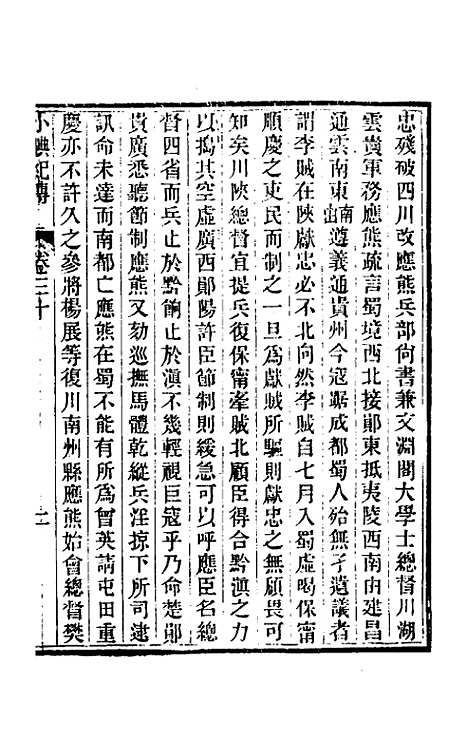 忠殘破四川改應熊兵部尙書兼文淵閣大學士總督川湖
雲貴軍務應熊疏言蜀境西北接鄖東抵夷陵西南由建昌
通雲南東南由遵義通貴州今寇踞成都蜀人殆無孑遺議者
謂李賊在陜獻忠必不北向然李賊自七月入蜀虛喝保甯
順慶之吏民而制之一旦爲獻賊所驅則獻忠之無顧畏可
知矣川陜總督宜提兵復保甯牽賊北顧臣得合黔滇之力
以搗其空虛廣西鄖陽許臣節制則緩急可以呼應臣名總
督四省而兵止於黔餉止於滇不幾輕視巨寇乎乃命楚鄖
貴廣悉聽節制應熊又劾巡撫馬體乾縱兵淫掠下所司逮
訊命未達而南都亡應熊在蜀不能有所爲曾英請屯田重
慶亦不許久之參將楊展等復川南州縣應熊始會總督樊
小腆紀傳 卷三十